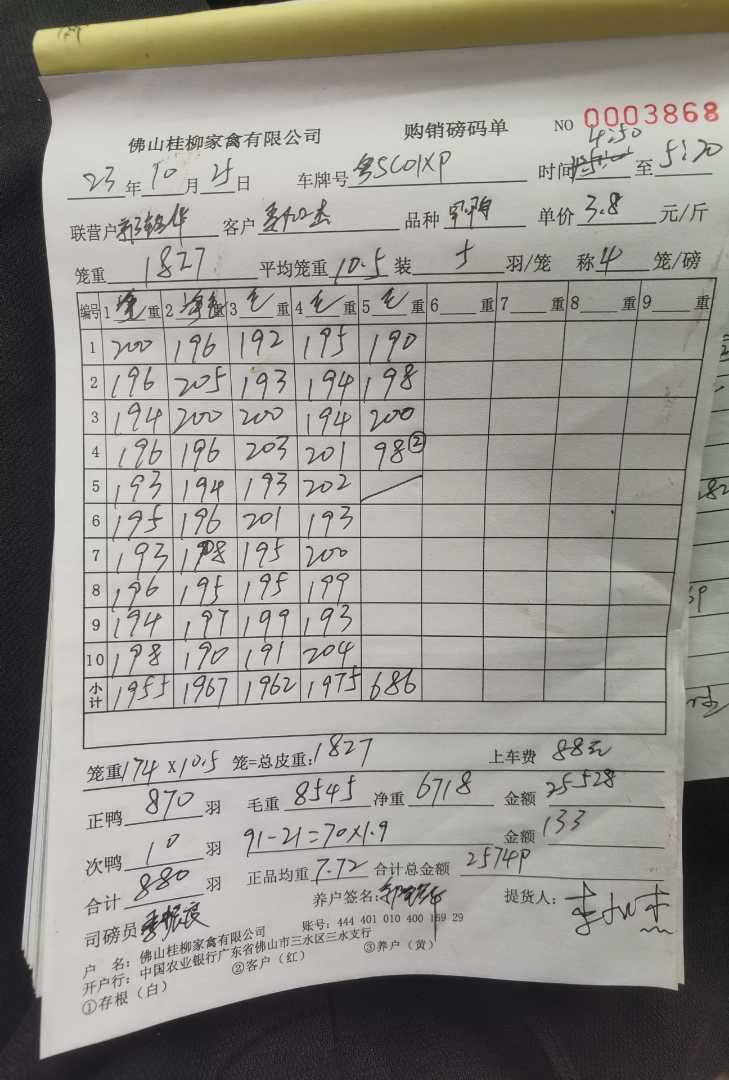 佛山桂柳家禽有限公司 购销磅码单 NO 0003868
23年10月25日 车牌号粤SC01XP 时间 4:50 至 5:20
联营户 客户 品种 单价3.8元/斤
笼重1827 平均笼重10.5 装 5 羽/笼 称4笼/磅
编号 1 毛重 2 重 3 毛重 4 毛重 5 毛重 6 重 7 重 8 重 9 重
1 200 196 192 195 190
2 196 205 193 194 198
3 194 200 200 194 200
4 196 196 203 201 98②
5 193 194 193 202
6 195 196 201 193
7 193 198 195 200
8 196 195 195 199
9 194 197 199 193
10 198 190 191 204
小计 1955 1967 1962 1975 686
笼重174×10.5 笼=总皮重:1827 上车费 88元
正鸭 870 羽 毛重 8545 净重 6718 金额 25528
次鸭 10 羽 91-21=70×1.9 金额 133
合计 880 羽 正品均重 7.72 合计总金额 25749
司磅员 养户签名: 提货人:
户 名: 佛山桂柳家禽有限公司 账号: 444 401 010 400 169 29
开户行: 中国农业银行广东省佛山市三水区三水支行
①存根(白) ②客户(红) ③养户(黄)